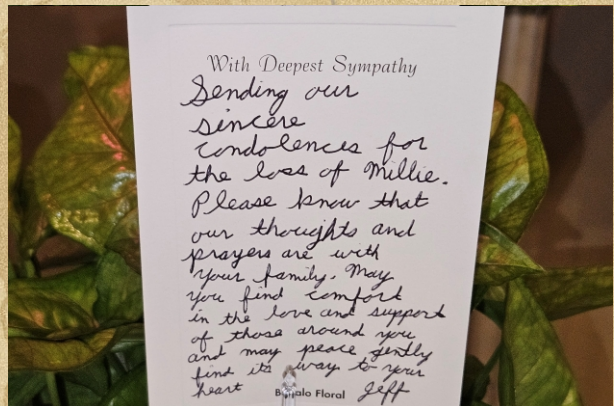 With Deepest Sympathy
Sending our
sincere
condolences for
the loss of Millie.
Please know that
our thoughts and
prayers are with
your family. May
you find comfort
in the love and support
of those around you
and may peace gently
find its way to your
heart Jeff
Floral